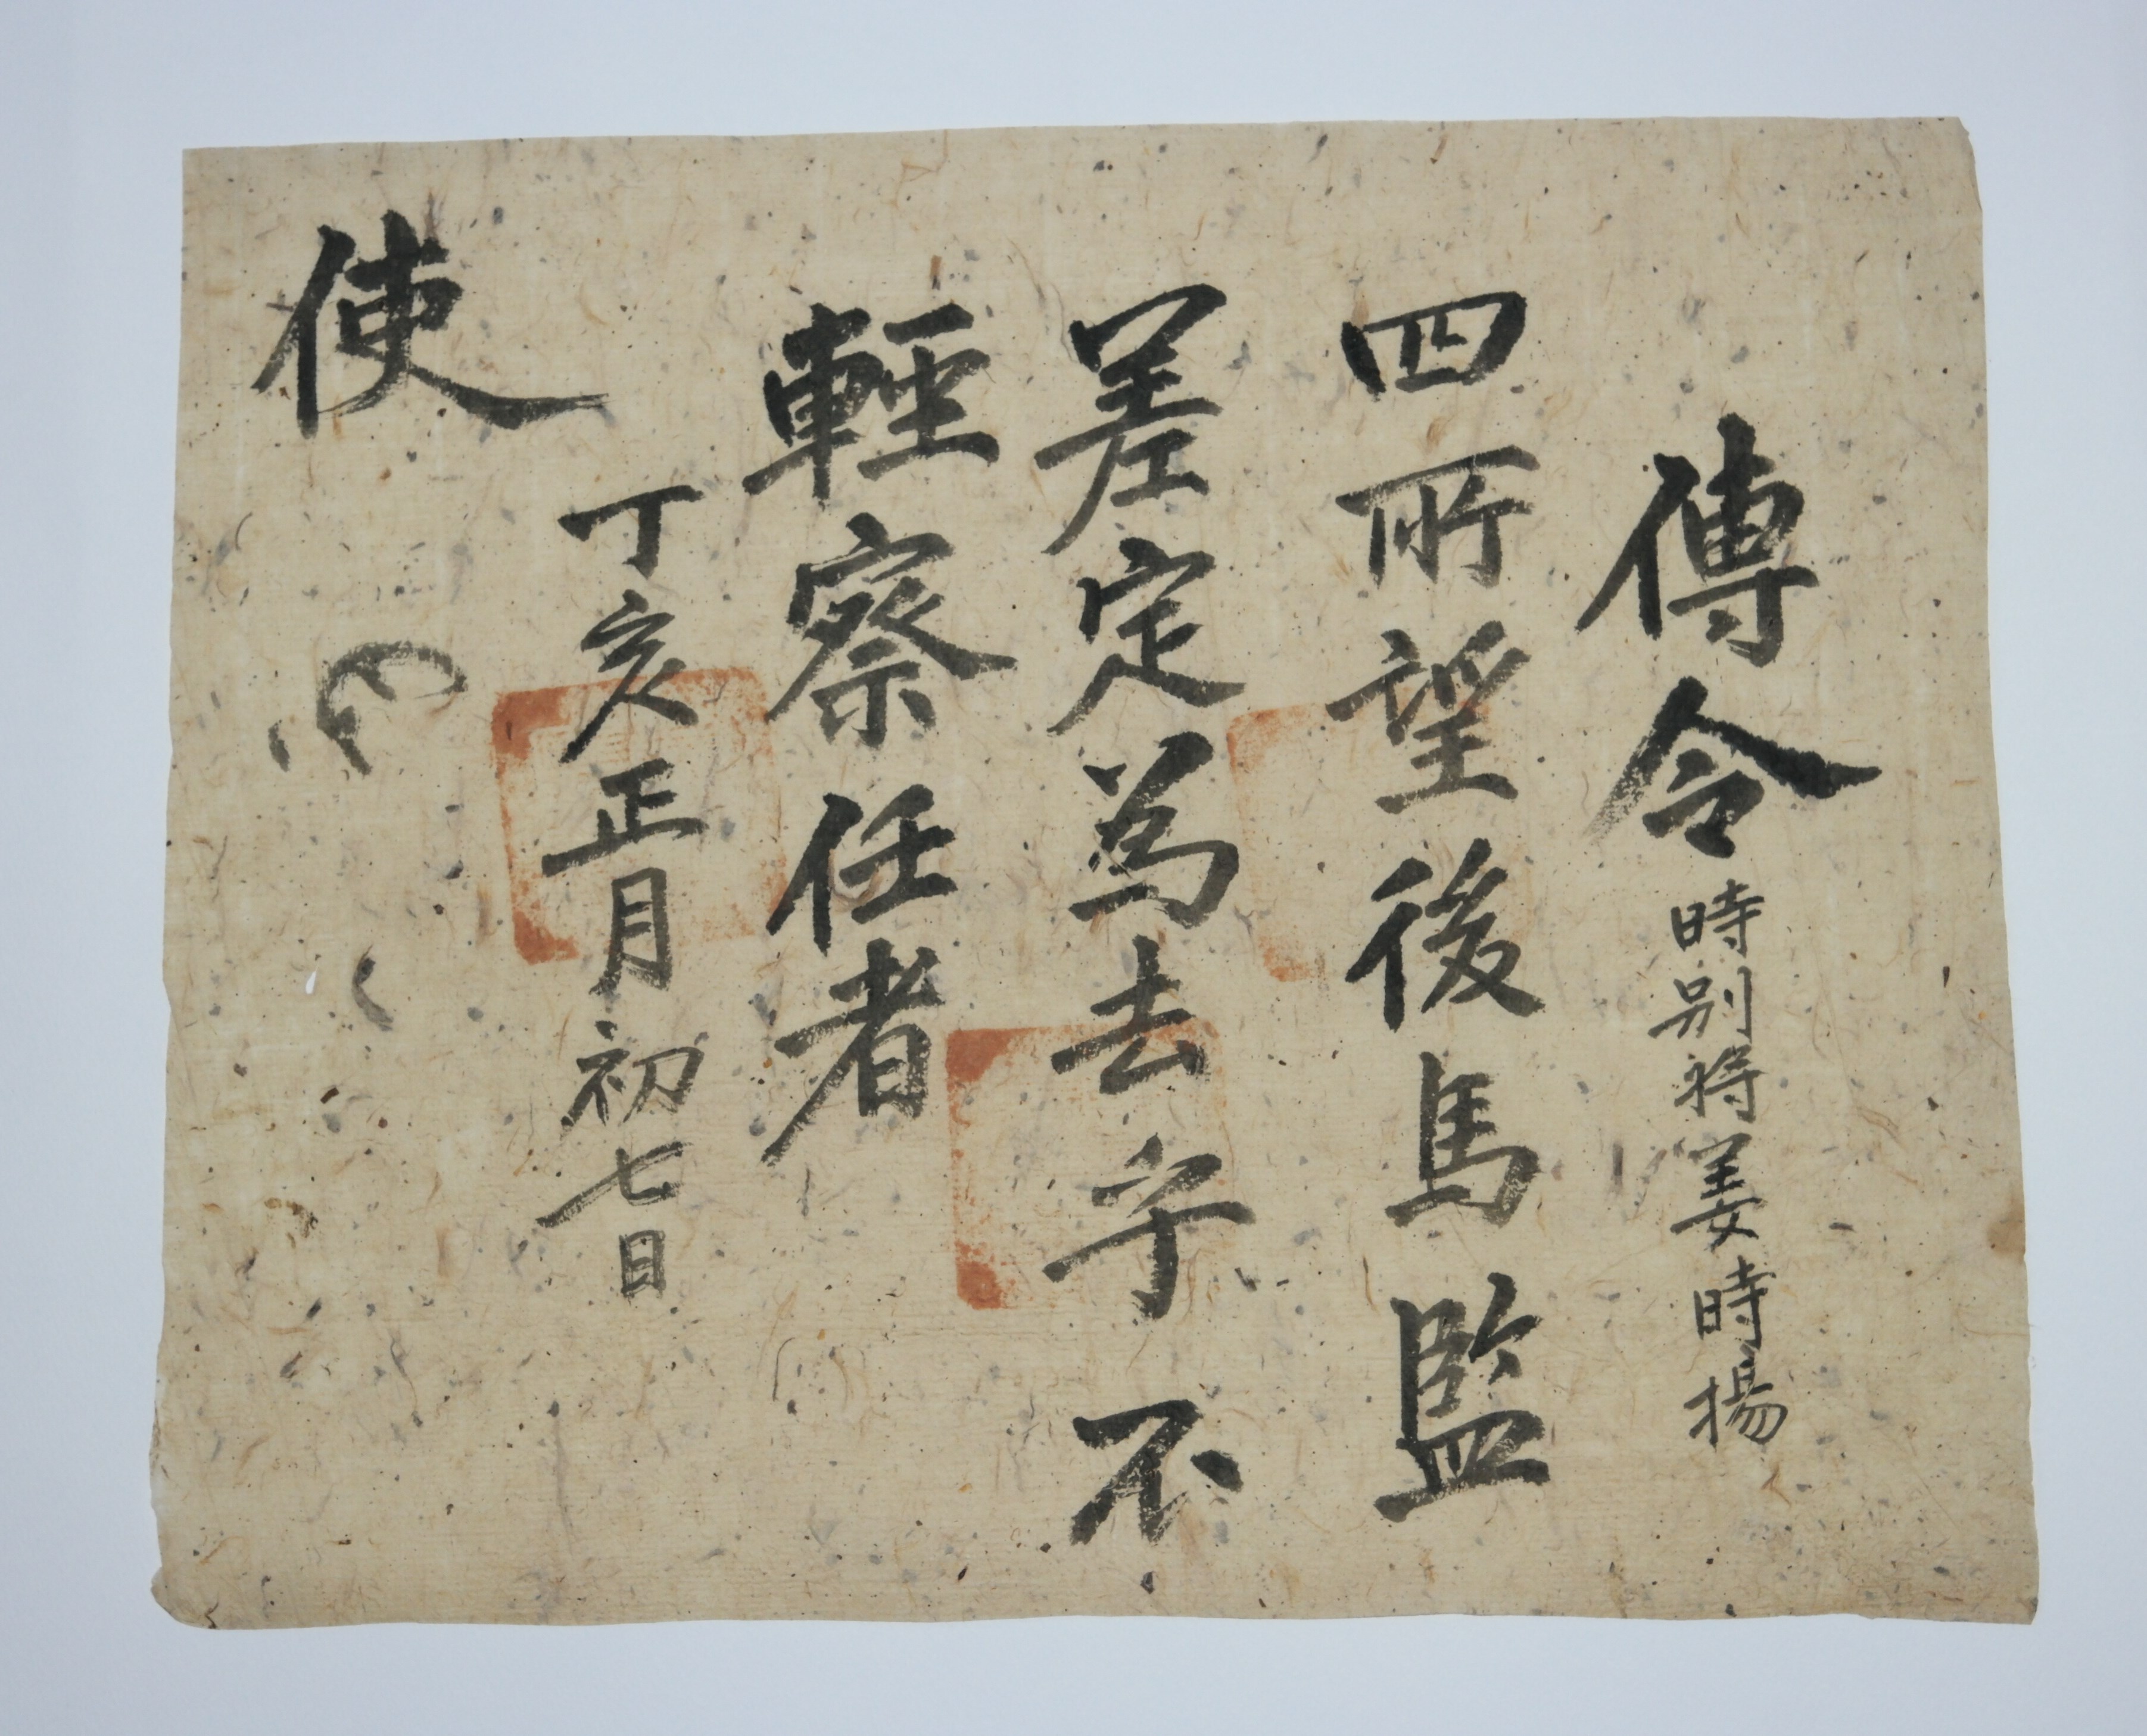 傳令 時別將姜時揚
四所望後馬監
差定爲去乎不
輕察任者
丁亥正月初七日
使